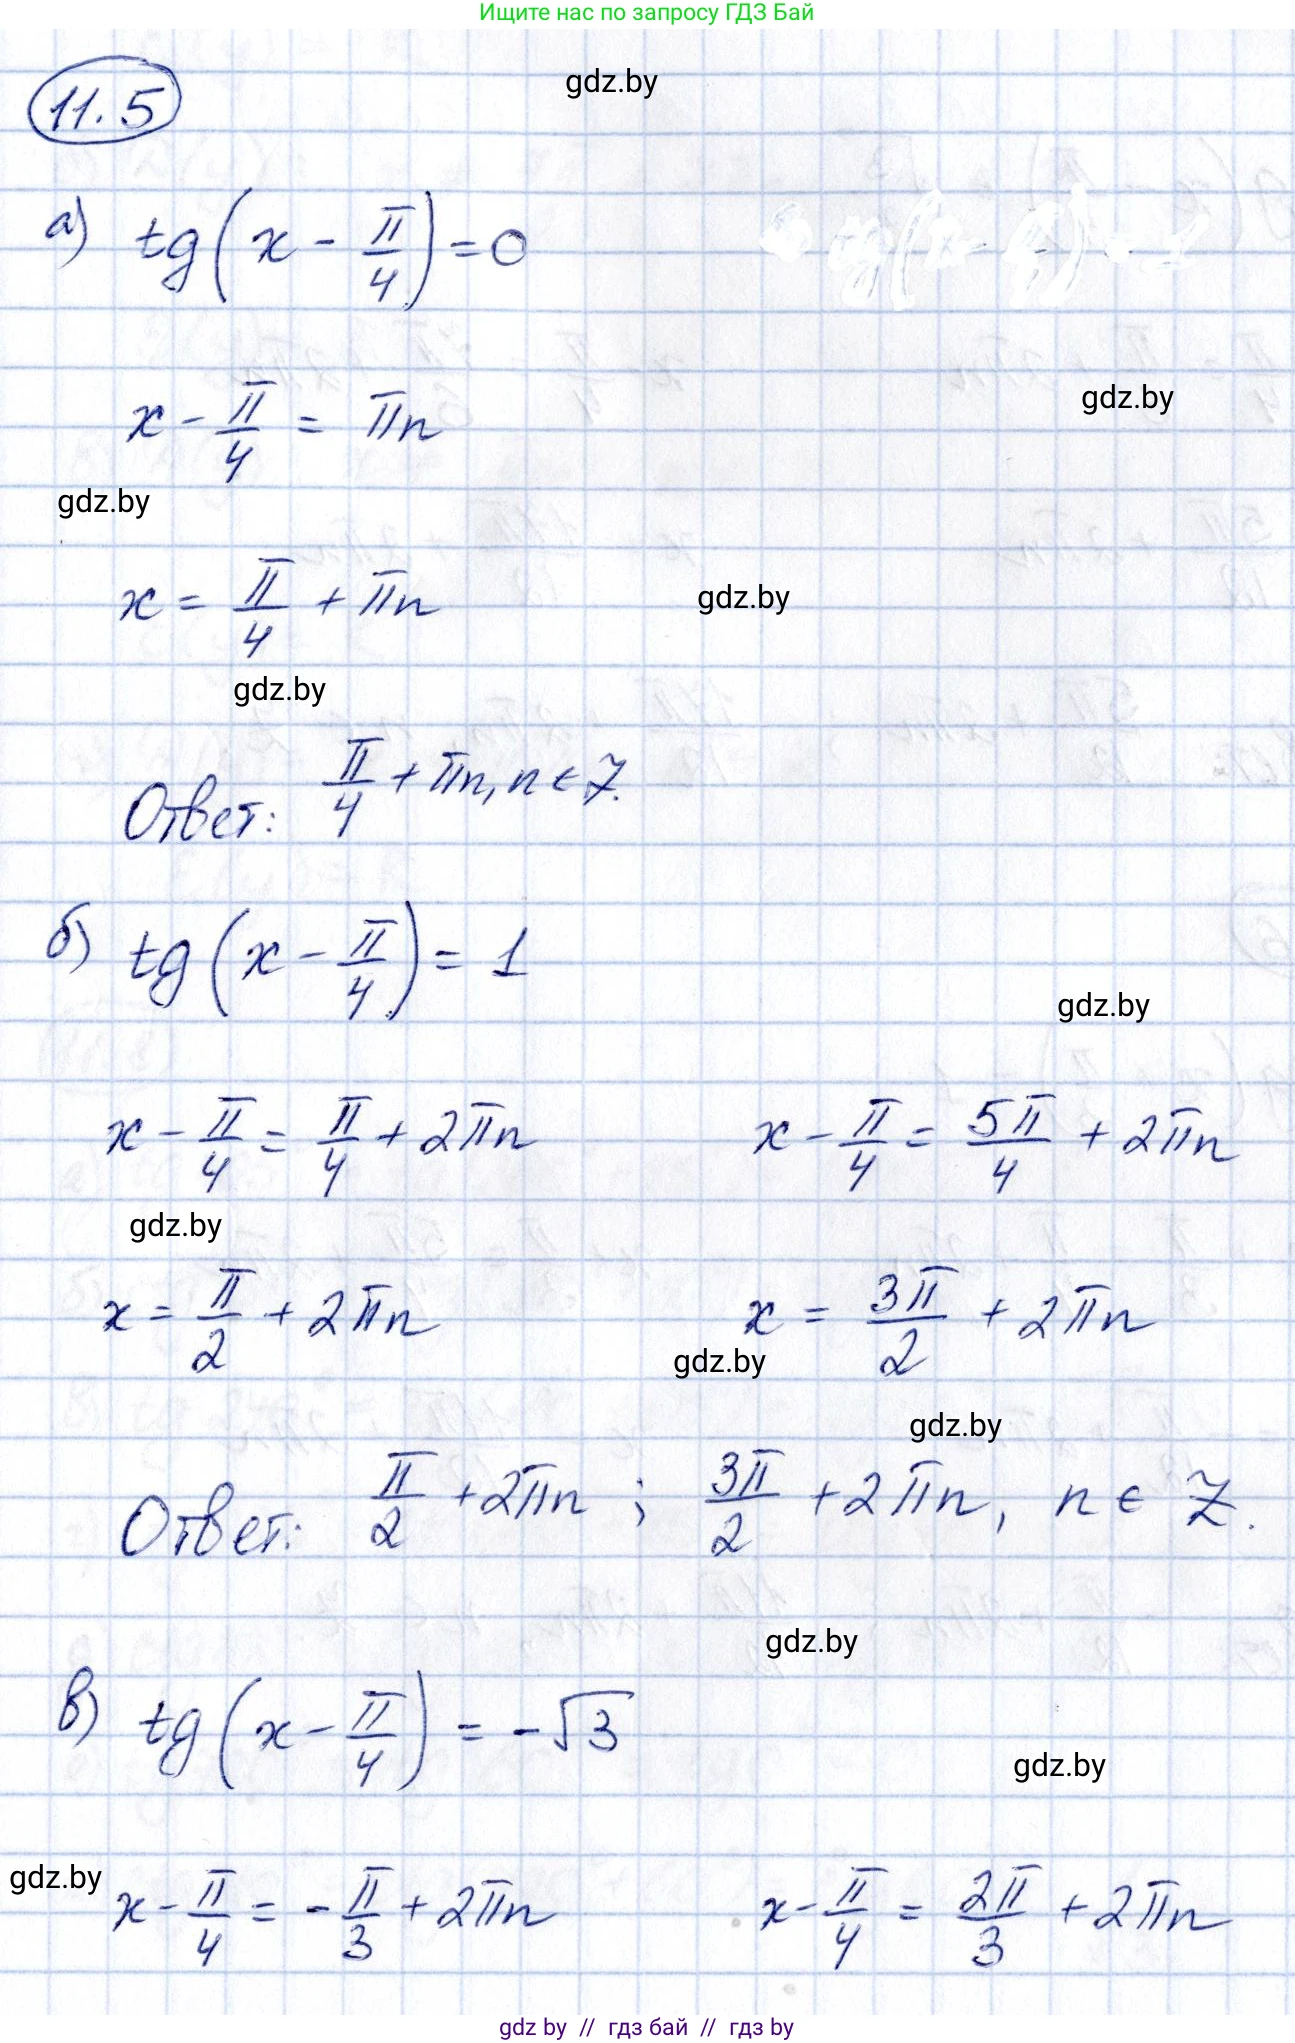 Ищите нас по запросу ГДЗ Бай
gdz.by
11.5
а) tg(x - π/4) = 0
x - π/4 = πn
gdz.by
gdz.by
x = π/4 + πn
gdz.by
gdz.by
Ответ: π/4 + πn, n ∈ Z.
б) tg(x - π/4) = 1
gdz.by
x - π/4 = π/4 + 2πn   x - π/4 = 5π/4 + 2πn
gdz.by
x = π/2 + 2πn   x = 3π/2 + 2πn
gdz.by
gdz.by
Ответ: π/2 + 2πn ; 3π/2 + 2πn, n ∈ Z.
gdz.by
в) tg(x - π/4) = -√3
gdz.by
gdz.by
x - π/4 = -π/3 + 2πn   x - π/4 = 2π/3 + 2πn
gdz by // гдз бай // гдз by